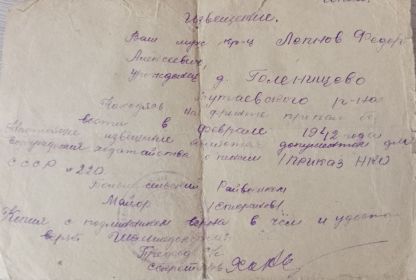 Извещение.
Ваш муж кр-ц Лопнов Федор
Алексеевич,
уроженец д. Голенищево
Тутаевского р-на
Находясь на фронте пропал без
вести в феврале 1942 года
Настоящее извещение является документом для
возбуждения ходатайства о пенсии (приказ НКО
СССР № 220
Райвоенком
Майор
Копия с подлинником верна в чем и удосто
веряет
Председ с/с
Секретарь